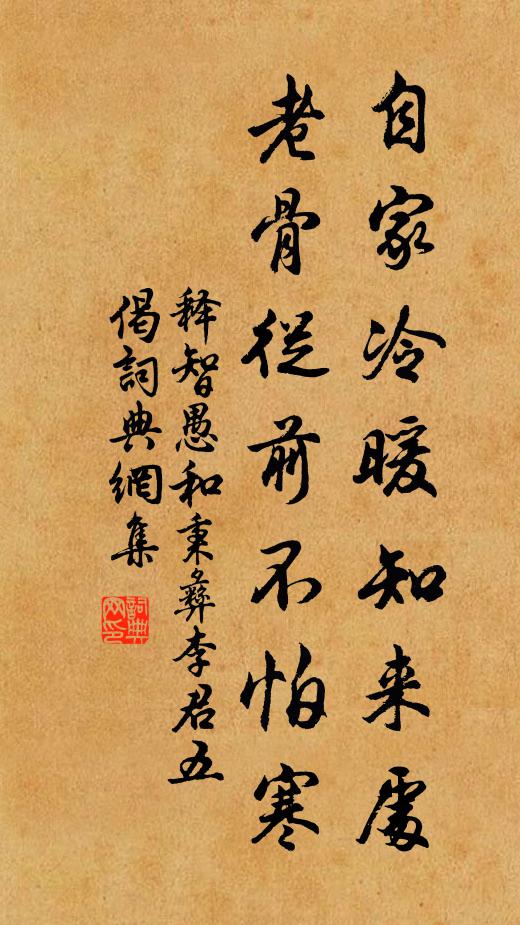 自家冷暖知来處
老骨從前不怕寒
释智愚和秉彝李君五
偈詞典網集
詞典
网印